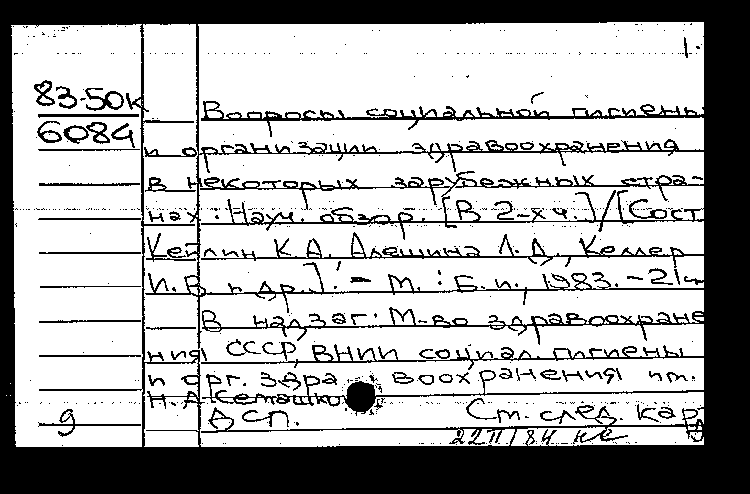 1.
83-50к
6084
Вопросы социальной гигиены
и организации здравоохранения
в некоторых зарубежных стра-
нах: Науч. обзор. [В 2-х ч.]/[Сост
Кейлин К.А., Алешина Л.Д., Келлер
И.В. и др.]. - М.: Б.и., 1983. - 21
В надзаг: М-во здравоохране
ния СССР, ВНИИ социал. гигиены
и орг. здравоохранения им.
Н.А. Семашко
9 ДСП. См. след. кар
22 II/84